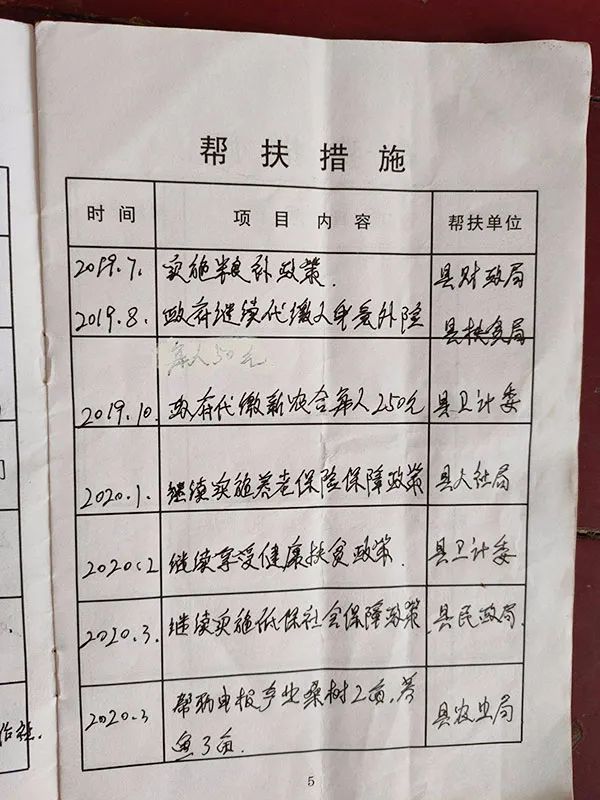 帮扶措施
时间 项目内容 帮扶单位
2019.7. 实施粮补政策. 县财政局
2019.8. 政府继续代缴人身意外险 县扶贫局
每人50元
2019.10. 政府代缴新农合每人250元 县卫计委
2020.1. 继续实施养老保险保障政策 县人社局
2020.2 继续享受健康扶贫政策. 县卫计委
2020.3. 继续实施低保社会保障政策 县民政局.
2020.3 帮助申报产业桑树2亩,养 县农业局
鱼3亩.
作社.
5